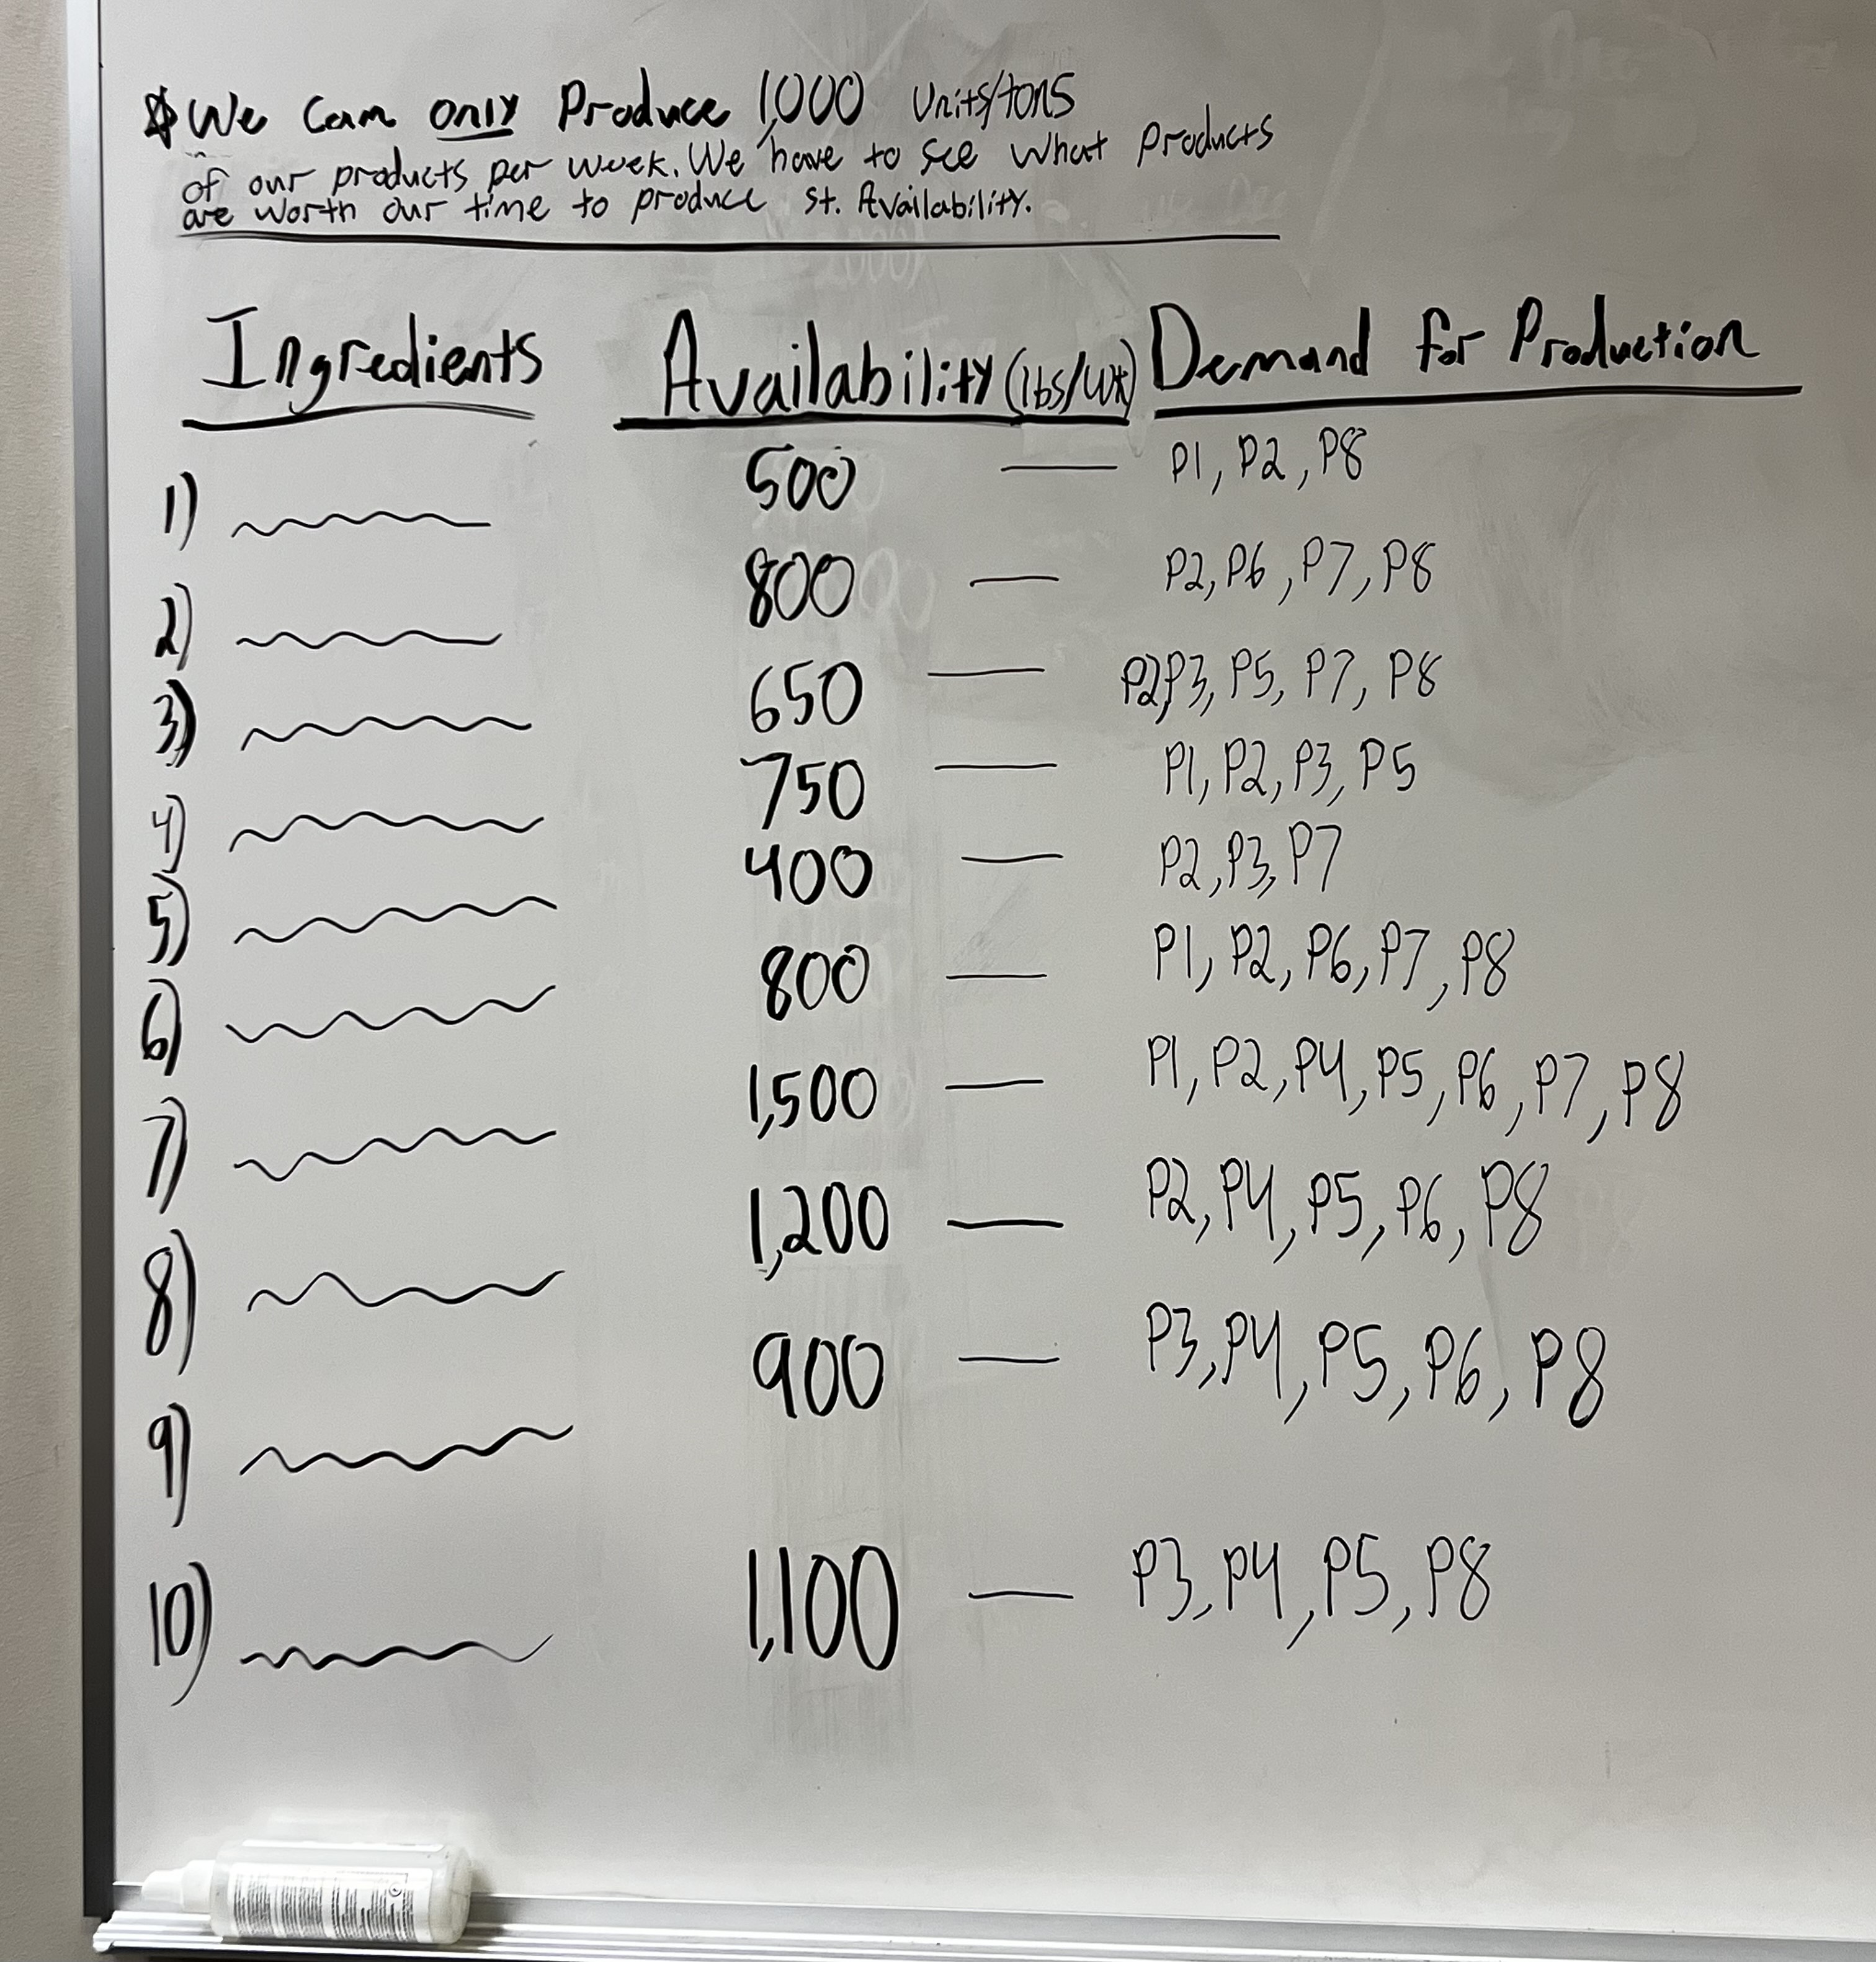 * We can only Produce 1,000 Units/tons
of our products per week. We have to see what products
are worth our time to produce st. Availability.
Ingredients Availability (lbs/wk) Demand for Production
1) 500 — P1, P2, P8
2) 800 — P2, P6, P7, P8
3) 650 — P2, P3, P5, P7, P8
4) 750 — P1, P2, P3, P5
5) 400 — P2, P3, P7
6) 800 — P1, P2, P6, P7, P8
7) 1,500 — P1, P2, P4, P5, P6, P7, P8
8) 1,200 — P2, P4, P5, P6, P8
9) 900 — P3, P4, P5, P6, P8
10) 1,100 — P3, P4, P5, P8